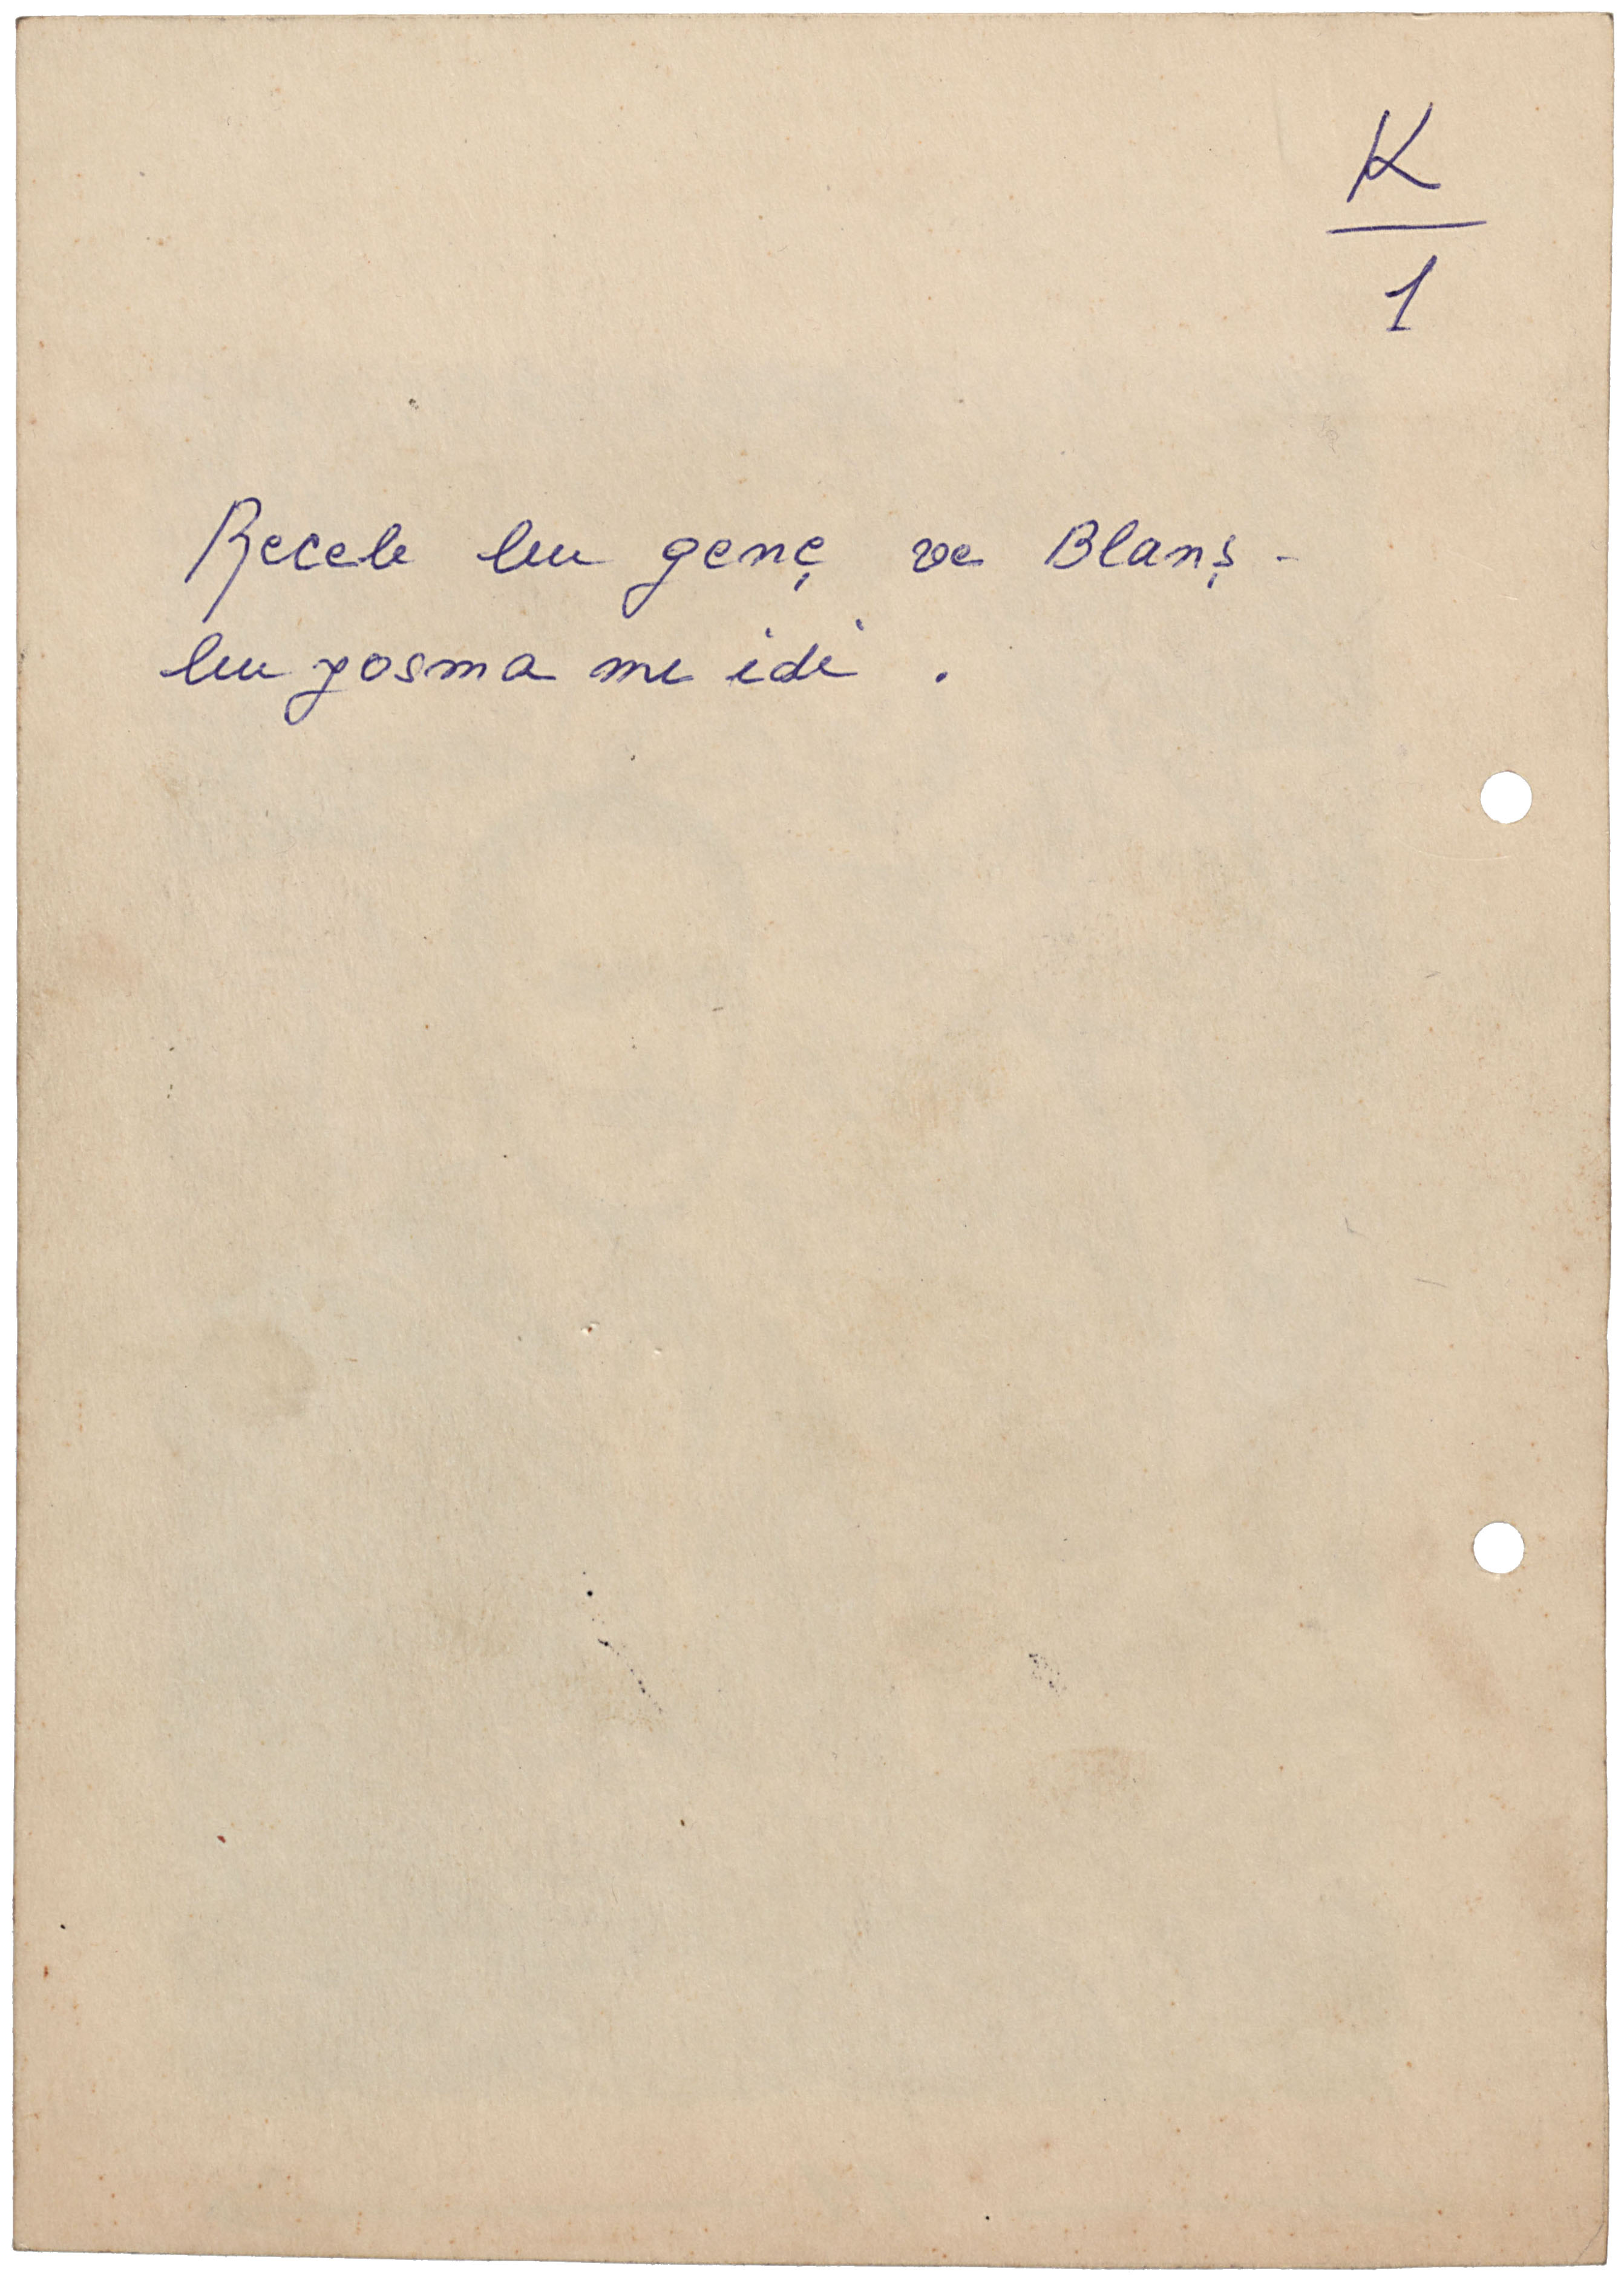 K
1
Receb bu genç ve Blanş -
bu yosma mı idi .